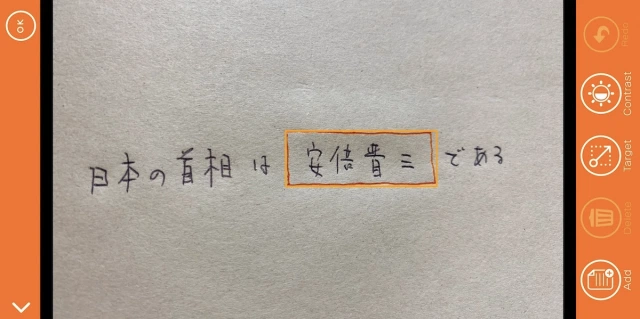 OK
日本の首相は 安倍晋三 である
Redo
Contrast
Target
Delete
Add